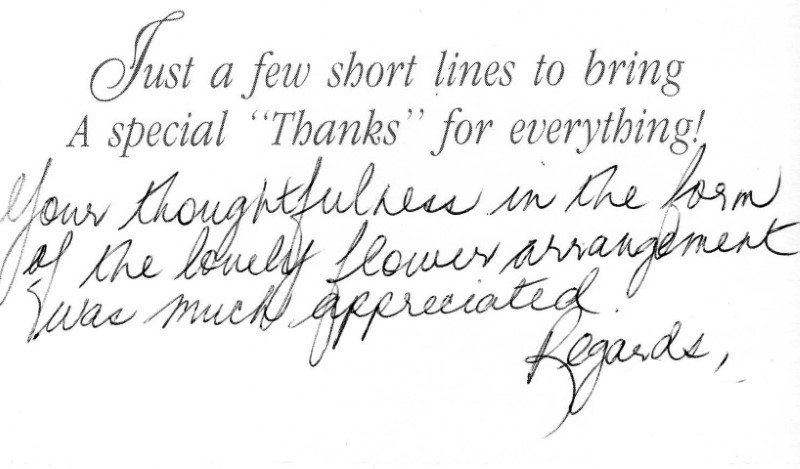 Just a few short lines to bring
A special “Thanks” for everything!
Your thoughtfulness in the form
of the lovely flower arrangement
was much appreciated.
Regards,